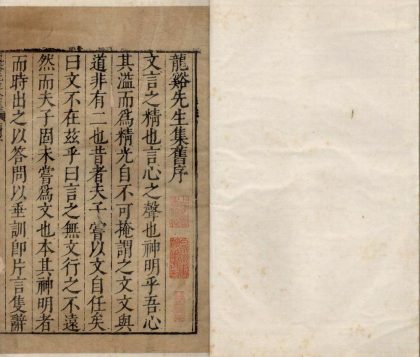 龍谿先生集舊序
文言之精也言心之聲也神明乎吾心
其溢而爲精光自不可掩謂之文文與
道非有二也昔者夫子嘗以文自任矣
曰文不在茲乎曰言之無文行之不遠
然而夫子固未嘗爲文也本其神明者
而時出之以答問以垂訓卽片言隻辭